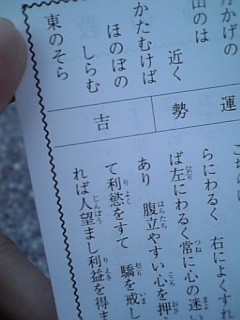 月かげの
山のは
近く
かたむけば
ほのぼの
しらむ
東のそら
運勢
吉
らにわるく 右によくすれ
ば左にわるく常に心の迷い
あり 腹立やすい心を押
て利慾をすて 驕を戒し
れば人望まし利益を得ま